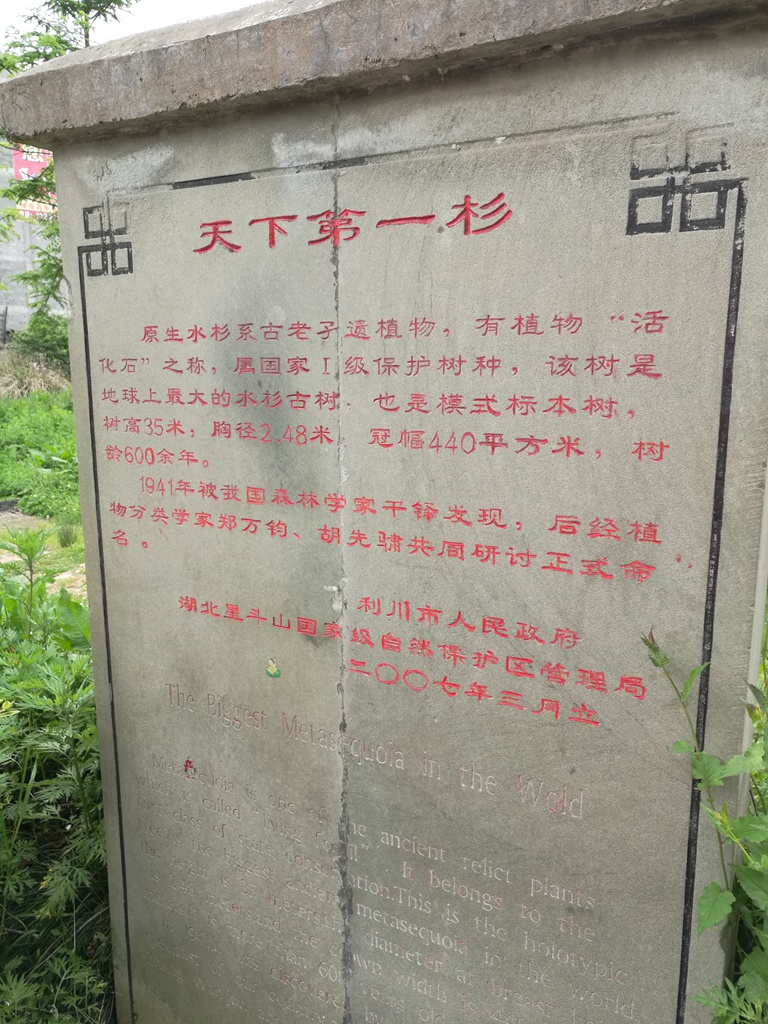 天下第一杉
原生水杉系古老孑遗植物，有植物“活
化石”之称，属国家Ⅰ级保护树种，该树是
地球上最大的水杉古树，也是模式标本树，
树高35米，胸径2.48米，冠幅440平方米，树
龄600余年。
1941年被我国森林学家干铎发现，后经植
物分类学家郑万钧、胡先骕共同研讨正式命
名。
利川市人民政府
湖北星斗山国家级自然保护区管理局
二〇〇七年三月立
The Biggest Metasequoia in the Wold
Metasequoia is one of the ancient relict plants
which is called "living fossil". It belongs to the
first class of state conservation.This is the holotypic
tree & the biggest ancient metasequoia in the world.